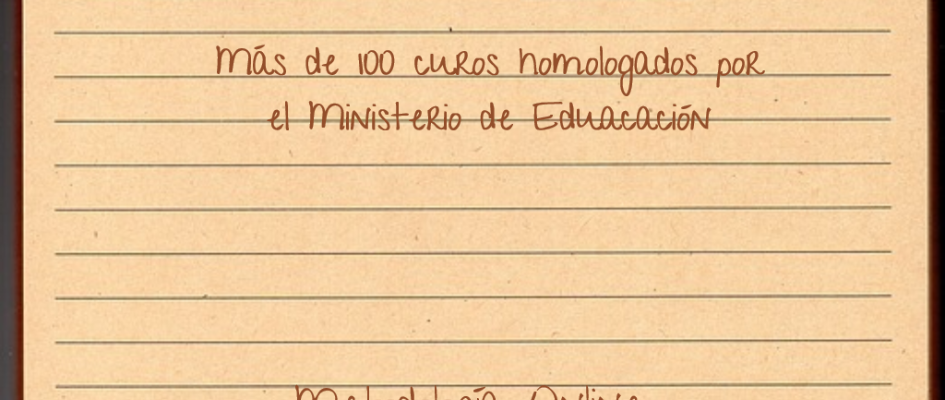 Más de 100 curos homologados por
el Ministerio de Eduacación